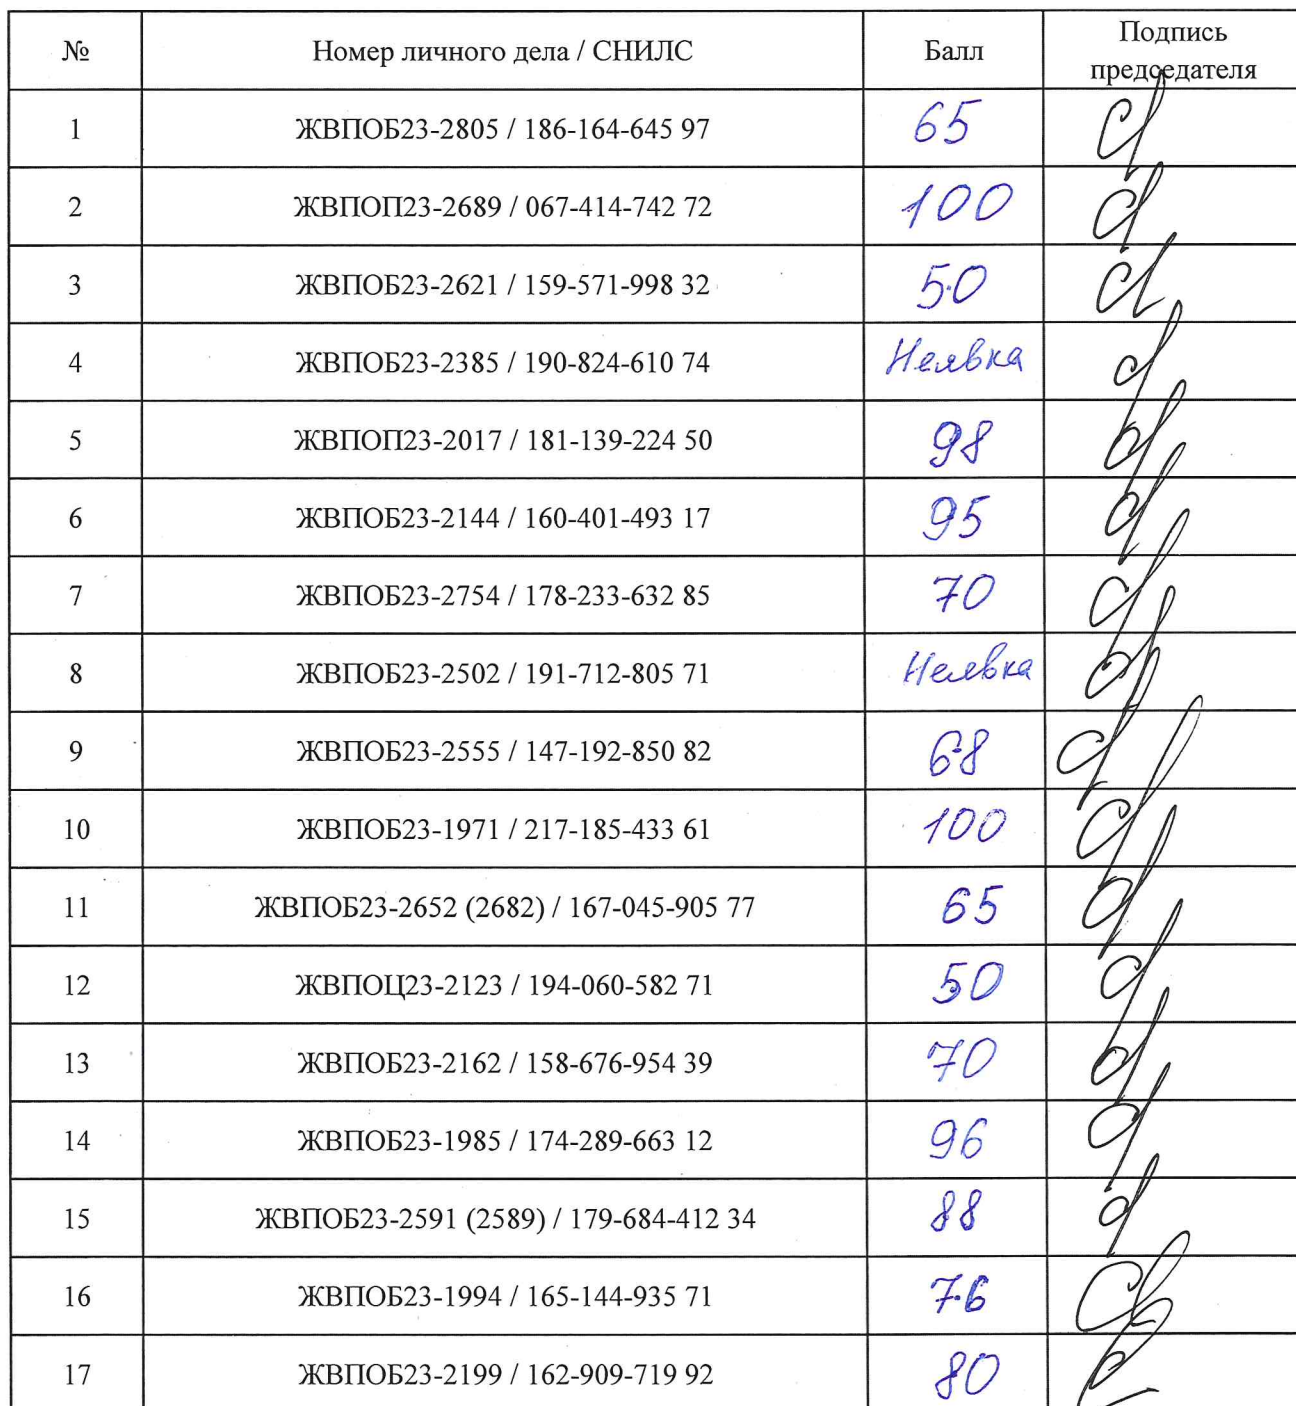 № Номер личного дела / СНИЛС Балл Подпись
председателя
1 ЖВПОБ23-2805 / 186-164-645 97 65
2 ЖВПОП23-2689 / 067-414-742 72 100
3 ЖВПОБ23-2621 / 159-571-998 32 50
4 ЖВПОБ23-2385 / 190-824-610 74 Неявка
5 ЖВПОП23-2017 / 181-139-224 50 98
6 ЖВПОБ23-2144 / 160-401-493 17 95
7 ЖВПОБ23-2754 / 178-233-632 85 70
8 ЖВПОБ23-2502 / 191-712-805 71 Неявка
9 ЖВПОБ23-2555 / 147-192-850 82 68
10 ЖВПОБ23-1971 / 217-185-433 61 100
11 ЖВПОБ23-2652 (2682) / 167-045-905 77 65
12 ЖВПОЦ23-2123 / 194-060-582 71 50
13 ЖВПОБ23-2162 / 158-676-954 39 70
14 ЖВПОБ23-1985 / 174-289-663 12 96
15 ЖВПОБ23-2591 (2589) / 179-684-412 34 88
16 ЖВПОБ23-1994 / 165-144-935 71 76
17 ЖВПОБ23-2199 / 162-909-719 92 80